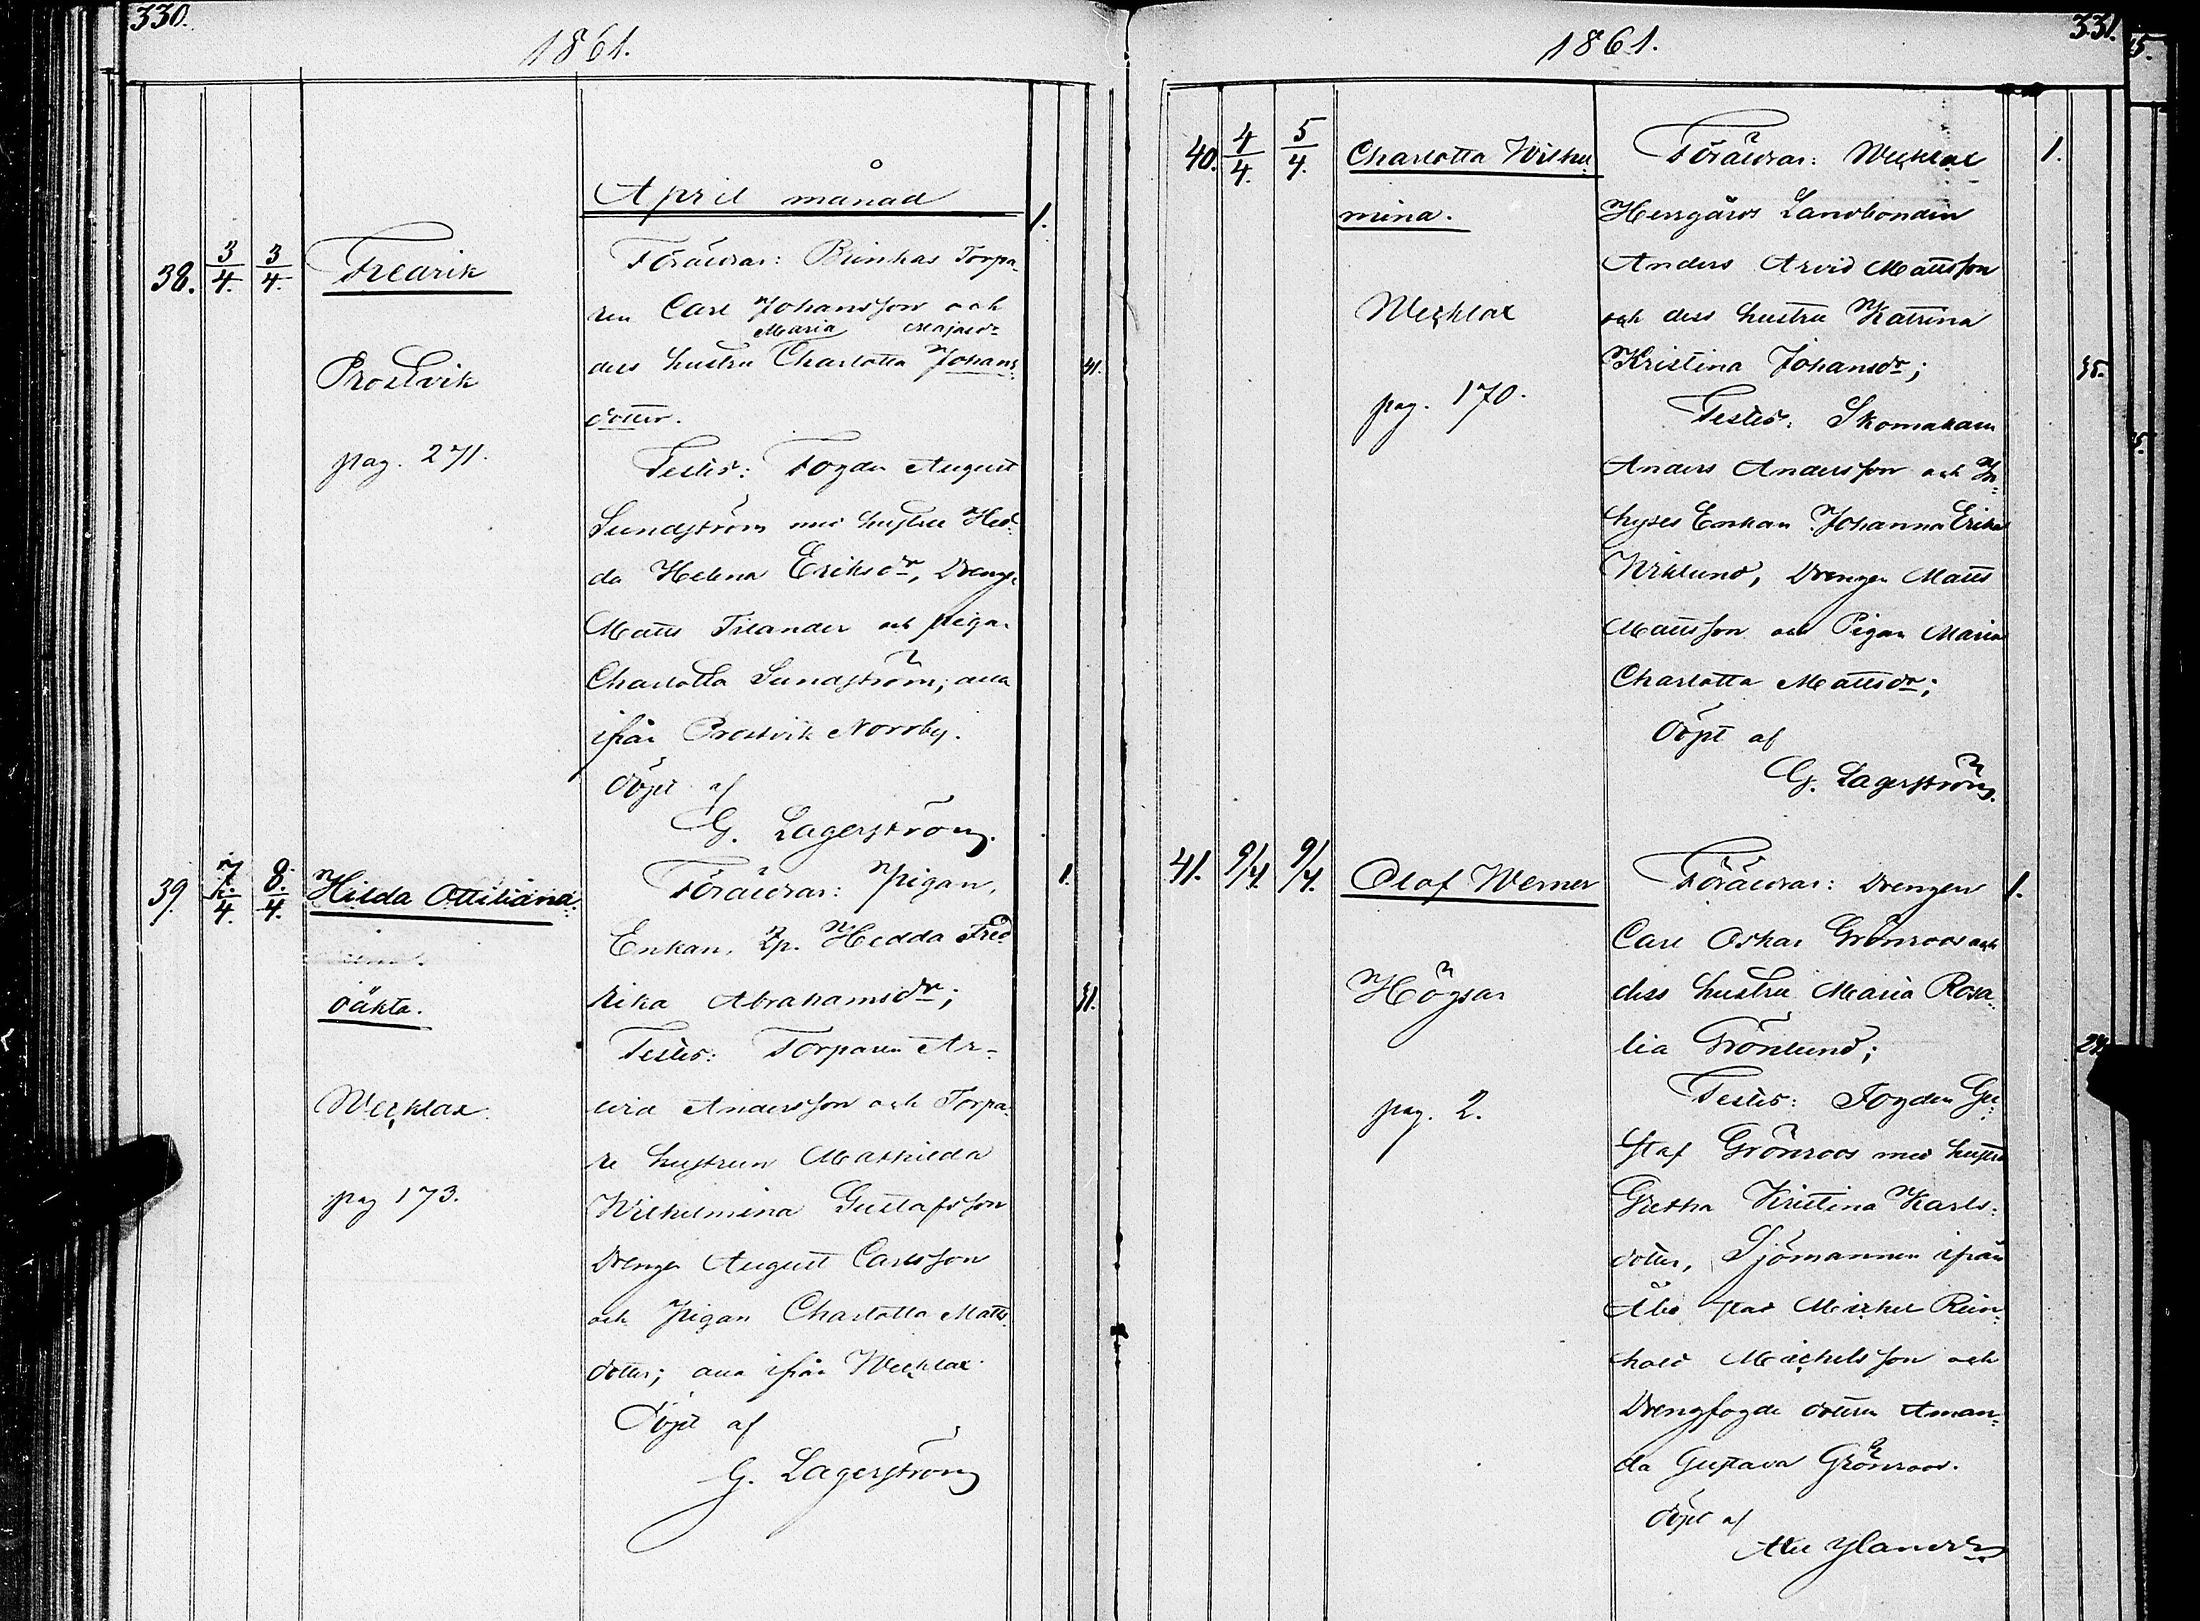 330.
1861.
April månad
1.
38. 3/4. 3/4. Fredrik
Föräldrar: Bünkas Torpa-
ren Carl Johansson och
Maria Majasdr
dess hustru Charlotta Johans-
dotter.
41.
Prostvik
pag. 271.
Testes: Fogden August
Sundström med hustru Hed-
da Helena Eriksdr, Drengen
Matts Filander och pigan
Charlotta Sundström; alla
ifrån Prostvik Norrby.
döpt af
G. Lagerström.
39. 7/4. 8/4. Hilda Ottiliana.
oäkta.
Wechlax.
pag 173.
Föräldrar: Pigan,
1.
Enkan, Hedda Fred-
rika Abrahamsdr;
31.
Testes: Torparen Ar-
vid Andersson och Torpa-
re hustrun Mathilda
Wilhelmina Gustafsson
Drengen August Carlsson
och Pigan Charlotta Matts-
dotter; alla ifrån Wechlax.
Döpt af
G. Lagerström
331.
1861.
40. 4/4. 5/4. Charlotta Wilhel-
mina.
Wechlax
pag. 170.
Föräldrar: Wechlax
1.
Herrgårds Landbonden
Anders Arvid Mattsson
och dess hustru Katrina
Kristina Johansdr;
35.
Testes: Skomakaren
Anders Andersson och In-
hyses Enkan Johanna Erika
Wiklund, Drengen Matts
Mattsson och Pigan Maria
Charlotta Mattsdr;
döpt af
G. Lagerström.
41. 9/4. 9/4. Olof Werner
Högsar
pag. 2.
Föräldrar: Drengen
1.
Carl Oskar Grönroos och
dess hustru Maria Rosa-
lia Grönlund;
Testes: Fogden Gu-
staf Grönroos med hustru
Gretha Kristina Karls-
dotter, Sjömannen ifrån
Åbo stad Michel Rein-
hold Michelsson och
Drengfogde dottren Aman-
da Gustava Grönroos.
döpt af
Alex Ylander